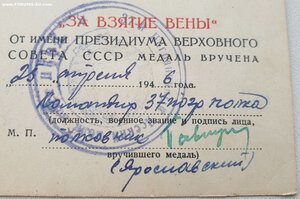 „ЗА ВЗЯТИЕ ВЕНЫ“
ОТ ИМЕНИ ПРЕЗИДИУМА ВЕРХОВНОГО
СОВЕТА СССР МЕДАЛЬ ВРУЧЕНА
„25 апреля 1946 года.
Командир 37 погр полка
(должность, воинское звание и подпись лица,
М. П. полковник
вручившего медаль)
(Ярославский)